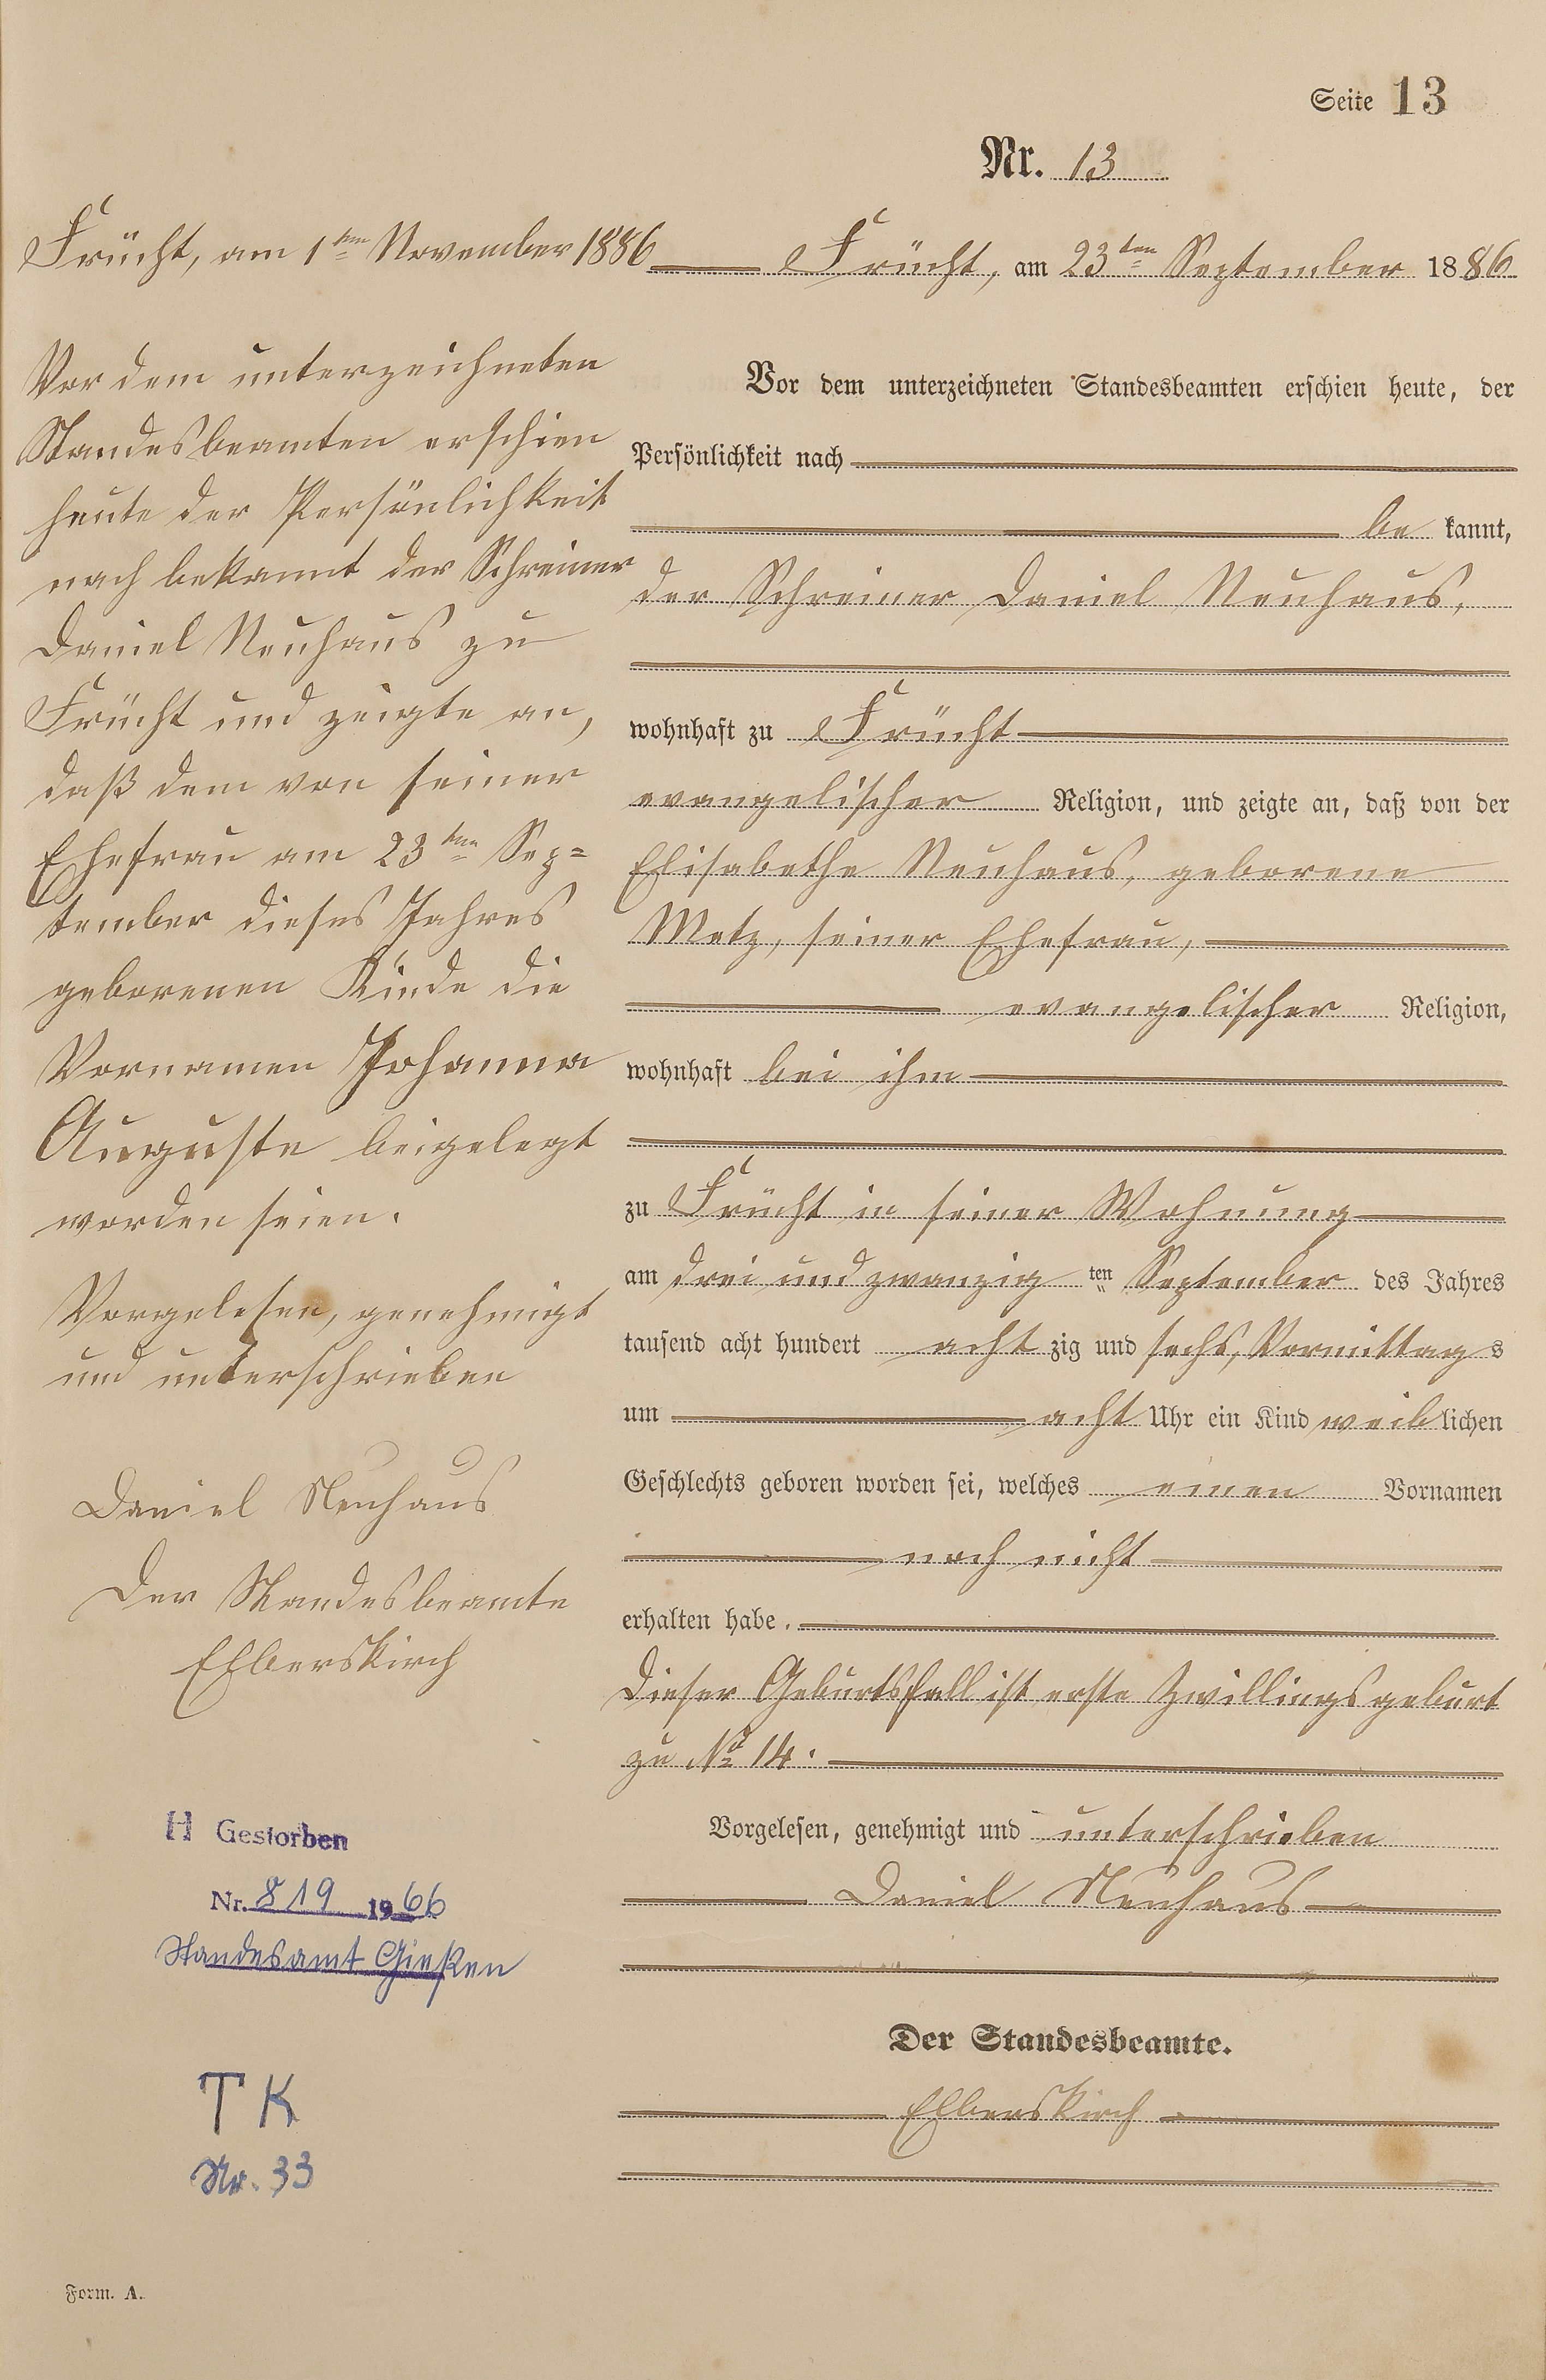 Seite 13
Nr. 13
Frücht, am 23ten September 1886
Vor dem unterzeichneten Standesbeamten erschien heute, der
Persönlichkeit nach
be kannt,
der Schreiner Daniel Neuhaus,
wohnhaft zu Frücht
evangelischer Religion, und zeigte an, daß von der
Elisabethe Neuhaus, geborene
Metz, seiner Ehefrau,
evangelischer Religion,
wohnhaft bei ihm
zu Frücht in seiner Wohnung
am drei und zwanzig ten September des Jahres
tausend acht hundert acht zig und sechs, Vormittag s
um acht Uhr ein Kind weib lichen
Geschlechts geboren worden sei, welches einen Vornamen
noch nicht
erhalten habe.
Dieser Geburtsfall ist erste Zwillingsgeburt
zu No 14.
Vorgelesen, genehmigt und unterschrieben
Daniel Neuhaus
Der Standesbeamte.
Elberskirch
Frücht, am 1ten November 1886
Vor dem unterzeichneten
Standesbeamten erschien
heute der Persönlichkeit
nach bekannt der Schreiner
Daniel Neuhaus zu
Frücht und zeigte an,
daß dem von seiner
Ehefrau am 23ten Sep=
tember dieses Jahres
geborenen Kinde die
Vornamen Johanna
Auguste beigelegt
worden seien.
Vorgelesen, genehmigt
und unterschrieben
Daniel Neuhaus
Der Standesbeamte
Elberskirch
H Gestorben
Nr. 819 1966
Standesamt Gießen
T K
Nr. 33
Form. A.